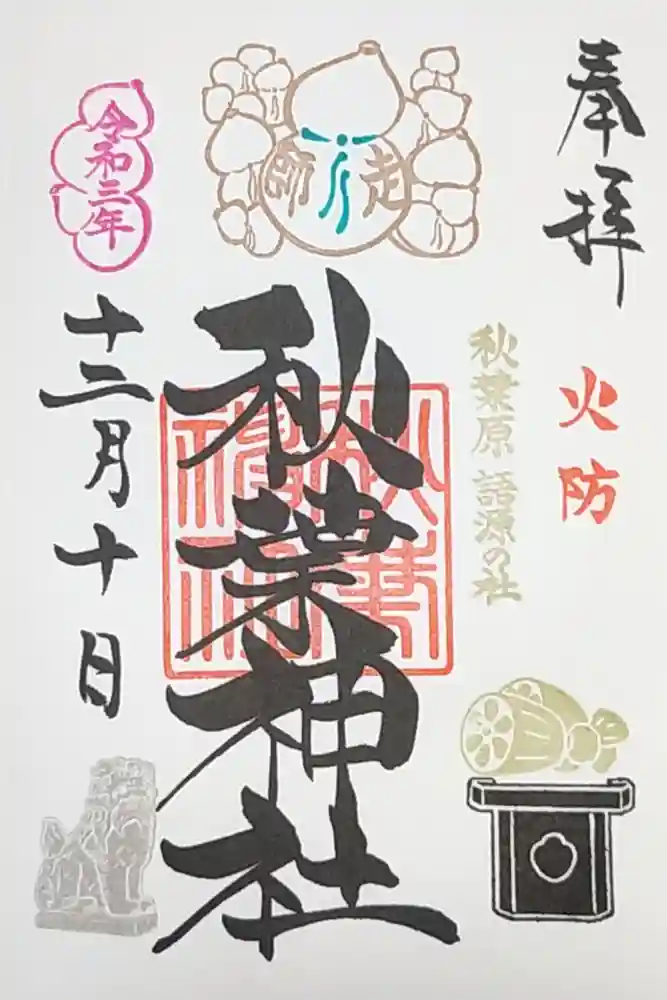 奉拝
火防
秋葉原 語源の社
走師
秋葉神社
秋葉神社
令和三年
十二月十日